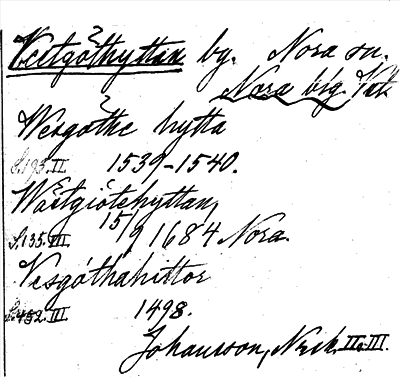 Vestgöthyttan by. Nora sn.
Nora blg. Vstm.
Wesgøthe hytta
S.195.II. 1539-1540.
Wästgiötehyttan,
S.135.III. 15/9 1684 Nora.
Vesgóthahittor
S.452.III. 1498.
Johansson, Nbsk. II o. III.